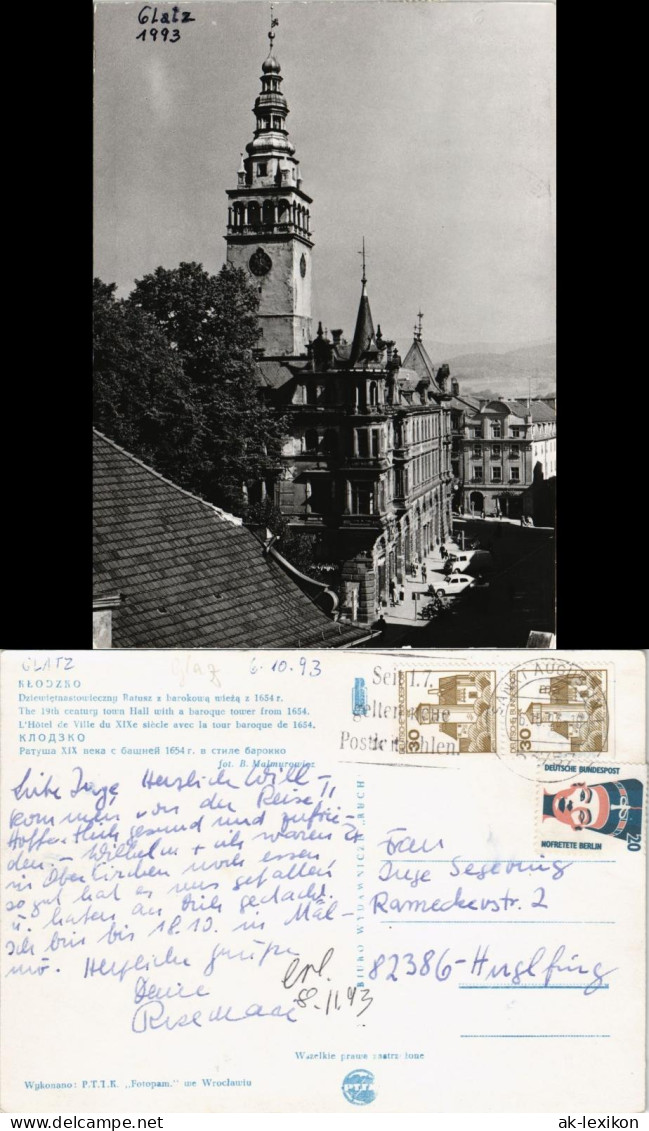 Glatz
1993
GLATZ 6.10.93
KŁODZKO
Dziewiętnastowieczny Ratusz z barokową wieżą z 1654 r.
The 19th century town Hall with a baroque tower from 1654.
L'Hôtel de Ville du XIXe siècle avec la tour baroque de 1654.
КЛОДЗКО
Ратуша XIX века с башней 1654 г. в стиле барокко
fot. B. Małmurowicz
Liebe Inge, Herzlich Will-
kommen von der Reise!
Hoffentlich gesund und zufrie-
den – Wilhelm + ich waren
in Oberkirchen noch essen
so gut hat es uns gefallen!
u. haben an Dich gedacht.
Ich bin bis 18.10. in Mal-
mö. Herzliche Grüße
Deine
Rosemarie
erl.
8.11.93
Seit 1.7.
gelten neue
Postleitzahlen.
30
DEUTSCHE BUNDESPOST
30
DEUTSCHE BUNDESPOST
DEUTSCHE BUNDESPOST
20
NOFRETETE BERLIN
Frau
Inge Segebing
Rameckerstr. 2
82386-Huglfing
BIURO WYDAWNICZE „RUCH"
Wszelkie prawa zastrzeżone
Wykonano: P.T.T.K. „Fotopam." we Wrocławiu
PTTK
ak-lexikon